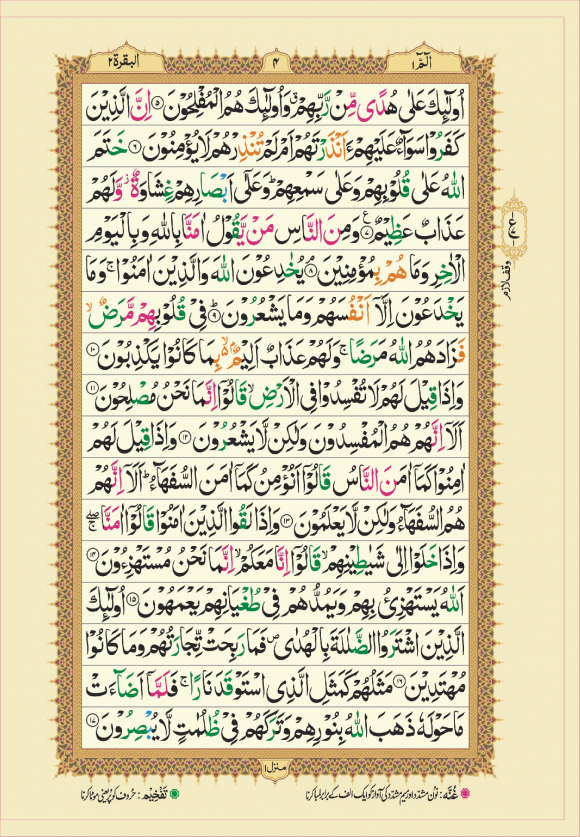 الٓمّٓ ١
٤
البقرة ٢
اُولٰٓئِكَ عَلٰى هُدًى مِّنْ رَّبِّهِمْ ۙ وَاُولٰٓئِكَ هُمُ الْمُفْلِحُوْنَ ۝٥ اِنَّ الَّذِيْنَ
كَفَرُوْا سَوَآءٌ عَلَيْهِمْ ءَاَنْذَرْتَهُمْ اَمْ لَمْ تُنْذِرْهُمْ لَا يُؤْمِنُوْنَ ۝٦ خَتَمَ
اللّٰهُ عَلٰى قُلُوْبِهِمْ وَعَلٰى سَمْعِهِمْ ؕ وَعَلٰٓى اَبْصَارِهِمْ غِشَاوَةٌ ؗ وَّلَهُمْ
عَذَابٌ عَظِيْمٌ ۝٧ ع وَمِنَ النَّاسِ مَنْ يَّقُوْلُ اٰمَنَّا بِاللّٰهِ وَبِالْيَوْمِ
الْاٰخِرِ وَمَا هُمْ بِمُؤْمِنِيْنَ ۝٨ۘ يُخٰدِعُوْنَ اللّٰهَ وَالَّذِيْنَ اٰمَنُوْا ۚ وَمَا
يَخْدَعُوْنَ اِلَّاۤ اَنْفُسَهُمْ وَمَا يَشْعُرُوْنَ ۝٩ؕ فِيْ قُلُوْبِهِمْ مَّرَضٌ ۙ
فَزَادَهُمُ اللّٰهُ مَرَضًا ۚ وَلَهُمْ عَذَابٌ اَلِيْمٌۢ ۙ۬ بِمَا كَانُوْا يَكْذِبُوْنَ ۝١٠
وَاِذَا قِيْلَ لَهُمْ لَا تُفْسِدُوْا فِي الْاَرْضِ ۙ قَالُوْۤا اِنَّمَا نَحْنُ مُصْلِحُوْنَ ۝١١
اَلَاۤ اِنَّهُمْ هُمُ الْمُفْسِدُوْنَ وَلٰكِنْ لَّا يَشْعُرُوْنَ ۝١٢ وَاِذَا قِيْلَ لَهُمْ
اٰمِنُوْا كَمَاۤ اٰمَنَ النَّاسُ قَالُوْۤا اَنُؤْمِنُ كَمَاۤ اٰمَنَ السُّفَهَآءُ ؕ اَلَاۤ اِنَّهُمْ
هُمُ السُّفَهَآءُ وَلٰكِنْ لَّا يَعْلَمُوْنَ ۝١٣ وَاِذَا لَقُوا الَّذِيْنَ اٰمَنُوْا قَالُوْۤا اٰمَنَّا ۖۚ
وَاِذَا خَلَوْا اِلٰى شَيٰطِيْنِهِمْ ۙ قَالُوْۤا اِنَّا مَعَكُمْ ۙ اِنَّمَا نَحْنُ مُسْتَهْزِءُوْنَ ۝١٤
اَللّٰهُ يَسْتَهْزِئُ بِهِمْ وَيَمُدُّهُمْ فِيْ طُغْيَانِهِمْ يَعْمَهُوْنَ ۝١٥ اُولٰٓئِكَ
الَّذِيْنَ اشْتَرَوُا الضَّلٰلَةَ بِالْهُدٰى ۪ فَمَا رَبِحَتْ تِّجَارَتُهُمْ وَمَا كَانُوْا
مُهْتَدِيْنَ ۝١٦ مَثَلُهُمْ كَمَثَلِ الَّذِي اسْتَوْقَدَ نَارًا ۚ فَلَمَّاۤ اَضَآءَتْ
مَا حَوْلَهٗ ذَهَبَ اللّٰهُ بِنُوْرِهِمْ وَتَرَكَهُمْ فِيْ ظُلُمٰتٍ لَّا يُبْصِرُوْنَ ۝١٧
وقف لازم
منزل ١
غُنَّه : نون مشدّد اور میم مشدّد کی آواز کو ایک الف کے برابر لمبا کرنا
تَفْخِيْم : حروف کو پُر یعنی موٹا کرنا